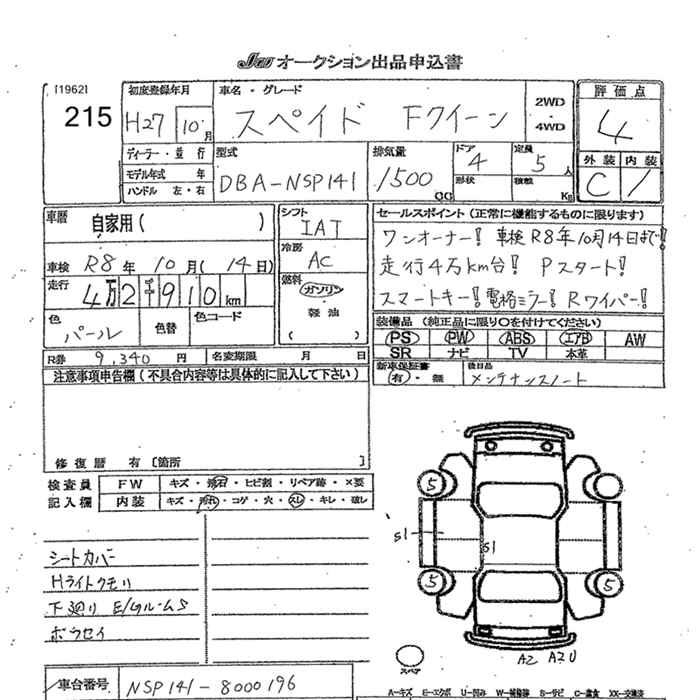 JU オークション出品申込書
[1962]
215
初度登録年月
H27 10月
車名・グレード
スペイド Fクイーン
2WD
・
4WD
評価点
4
外装 内装
C 1
ディーラー・並行
モデル年式 年
ハンドル 左・右
型式
DBA-NSP141
排気量
1500 CC
ドア
4
形状
定員
5 人
積載
Kg
車歴
自家用( )
シフト
IAT
セールスポイント(正常に機能するものに限ります)
ワンオーナー! 車検R8年10月14日まで!
走行4万km台! Pスタート!
スマートキー! 電格ミラー! Rワイパー!
車検 R8年 10月(14日)
冷房
AC
走行
4万2千910km
燃料
ガソリン
・
軽油
( )
色
パール
色替
色コード
装備品 (純正品に限り〇を付けてください)
PS PW ABS エアB AW
SR ナビ TV 本革
R券 9,340 円
名変期限 月 日
新車保証書
有・無
後日品
メンテナンスノート
注意事項申告欄(不具合内容等は具体的に記入して下さい)
修復歴 有 [箇所 ]
検査員
記入欄
FW キズ・飛石・ヒビ割・リペア跡・×要
内装 キズ・汚れ・コゲ・穴・スレ・キレ・破レ
シートカバー
Hライトクモリ
下廻り E/GルームS
ボラセイ
5
5
5
S1
S1
スペア
A2 A2U
車台番号 NSP141-8000196
A-キズ E-エクボ U-凹み W-補修跡 S-サビ C-腐食 XX-交換済